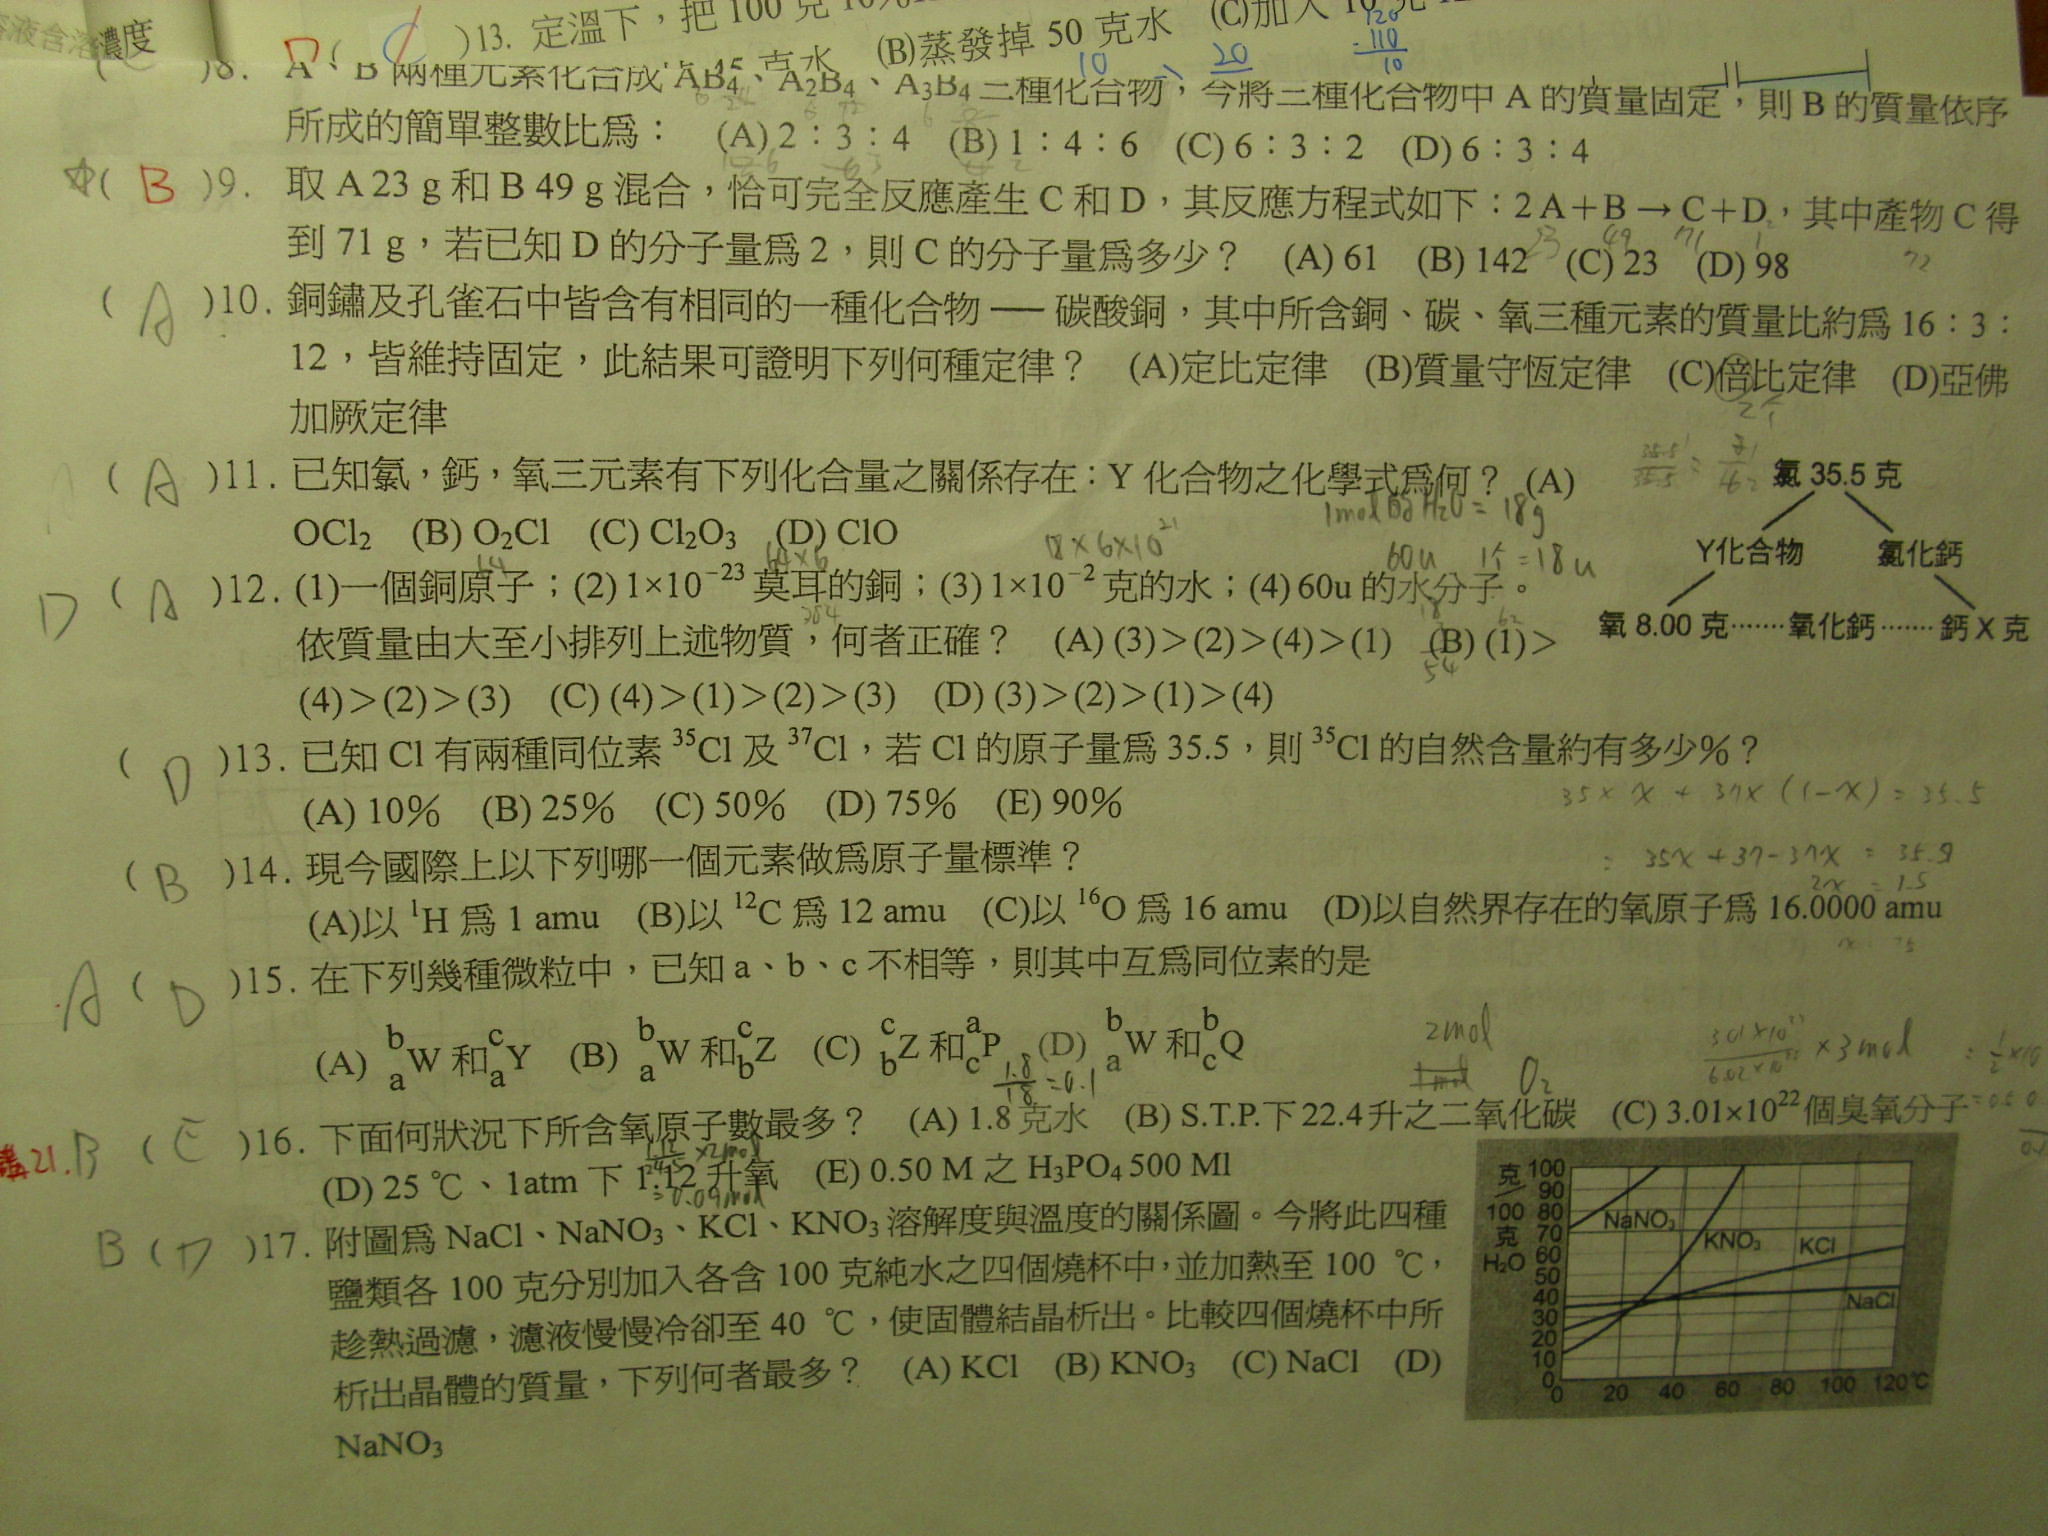 濃度
D ( C )13. 定溫下，把 100 克
(B)蒸發掉 50 克水
)8. A、B 兩種元素化合成 AB₄、A₂B₄、A₃B₄ 三種化合物，今將三種化合物中 A 的質量固定，則 B 的質量依序
所成的簡單整數比爲： (A) 2：3：4 (B) 1：4：6 (C) 6：3：2 (D) 6：3：4
( B )9. 取 A 23 g 和 B 49 g 混合，恰可完全反應產生 C 和 D，其反應方程式如下：2 A＋B → C＋D，其中產物 C 得
到 71 g，若已知 D 的分子量爲 2，則 C 的分子量爲多少？ (A) 61 (B) 142 (C) 23 (D) 98
( A )10. 銅鏽及孔雀石中皆含有相同的一種化合物 — 碳酸銅，其中所含銅、碳、氧三種元素的質量比約爲 16：3：
12，皆維持固定，此結果可證明下列何種定律？ (A)定比定律 (B)質量守恆定律 (C)倍比定律 (D)亞佛
加厥定律
( A )11. 已知氯，鈣，氧三元素有下列化合量之關係存在：Y 化合物之化學式爲何？ (A)
OCl₂ (B) O₂Cl (C) Cl₂O₃ (D) ClO
氯 35.5 克
Y化合物 氯化鈣
氧 8.00 克‧‧‧‧‧‧‧氧化鈣‧‧‧‧‧‧‧鈣 X 克
1mol的H₂O = 18g
18×6×10²¹
60u 1个=18u
D ( A )12. (1)一個銅原子；(2) 1×10⁻²³ 莫耳的銅；(3) 1×10⁻² 克的水；(4) 60u 的水分子。
依質量由大至小排列上述物質，何者正確？ (A) (3)＞(2)＞(4)＞(1) (B) (1)＞
(4)＞(2)＞(3) (C) (4)＞(1)＞(2)＞(3) (D) (3)＞(2)＞(1)＞(4)
( D )13. 已知 Cl 有兩種同位素 ³⁵Cl 及 ³⁷Cl，若 Cl 的原子量爲 35.5，則 ³⁵Cl 的自然含量約有多少％？
(A) 10% (B) 25% (C) 50% (D) 75% (E) 90%
35×x + 37×(1-x) = 35.5
( B )14. 現今國際上以下列哪一個元素做爲原子量標準？
(A)以 ¹H 爲 1 amu (B)以 ¹²C 爲 12 amu (C)以 ¹⁶O 爲 16 amu (D)以自然界存在的氧原子爲 16.0000 amu
A ( D )15. 在下列幾種微粒中，已知 a、b、c 不相等，則其中互爲同位素的是
(A) ᵇₐW 和 ᶜₐY (B) ᵇₐW 和 ᶜbZ (C) ᶜbZ 和 ᵃcP (D) ᵇₐW 和 ᵇcQ
1.8/18=0.1
2mol
O₂
B ( E )16. 下面何狀況下所含氧原子數最多？ (A) 1.8 克水 (B) S.T.P.下 22.4 升之二氧化碳 (C) 3.01×10²² 個臭氧分子
(D) 25 ℃、1atm 下 1.12 升氧 (E) 0.50 M 之 H₃PO₄ 500 Ml
=0.09mol
B ( D )17. 附圖爲 NaCl、NaNO₃、KCl、KNO₃ 溶解度與溫度的關係圖。今將此四種
鹽類各 100 克分別加入各含 100 克純水之四個燒杯中，並加熱至 100 ℃，
趁熱過濾，濾液慢慢冷卻至 40 ℃，使固體結晶析出。比較四個燒杯中所
析出晶體的質量，下列何者最多？ (A) KCl (B) KNO₃ (C) NaCl (D)
NaNO₃
克/100克H₂O
100
90
80
70
60
50
40
30
20
10
0
NaNO₃
KNO₃
KCl
NaCl
0 20 40 60 80 100 120℃